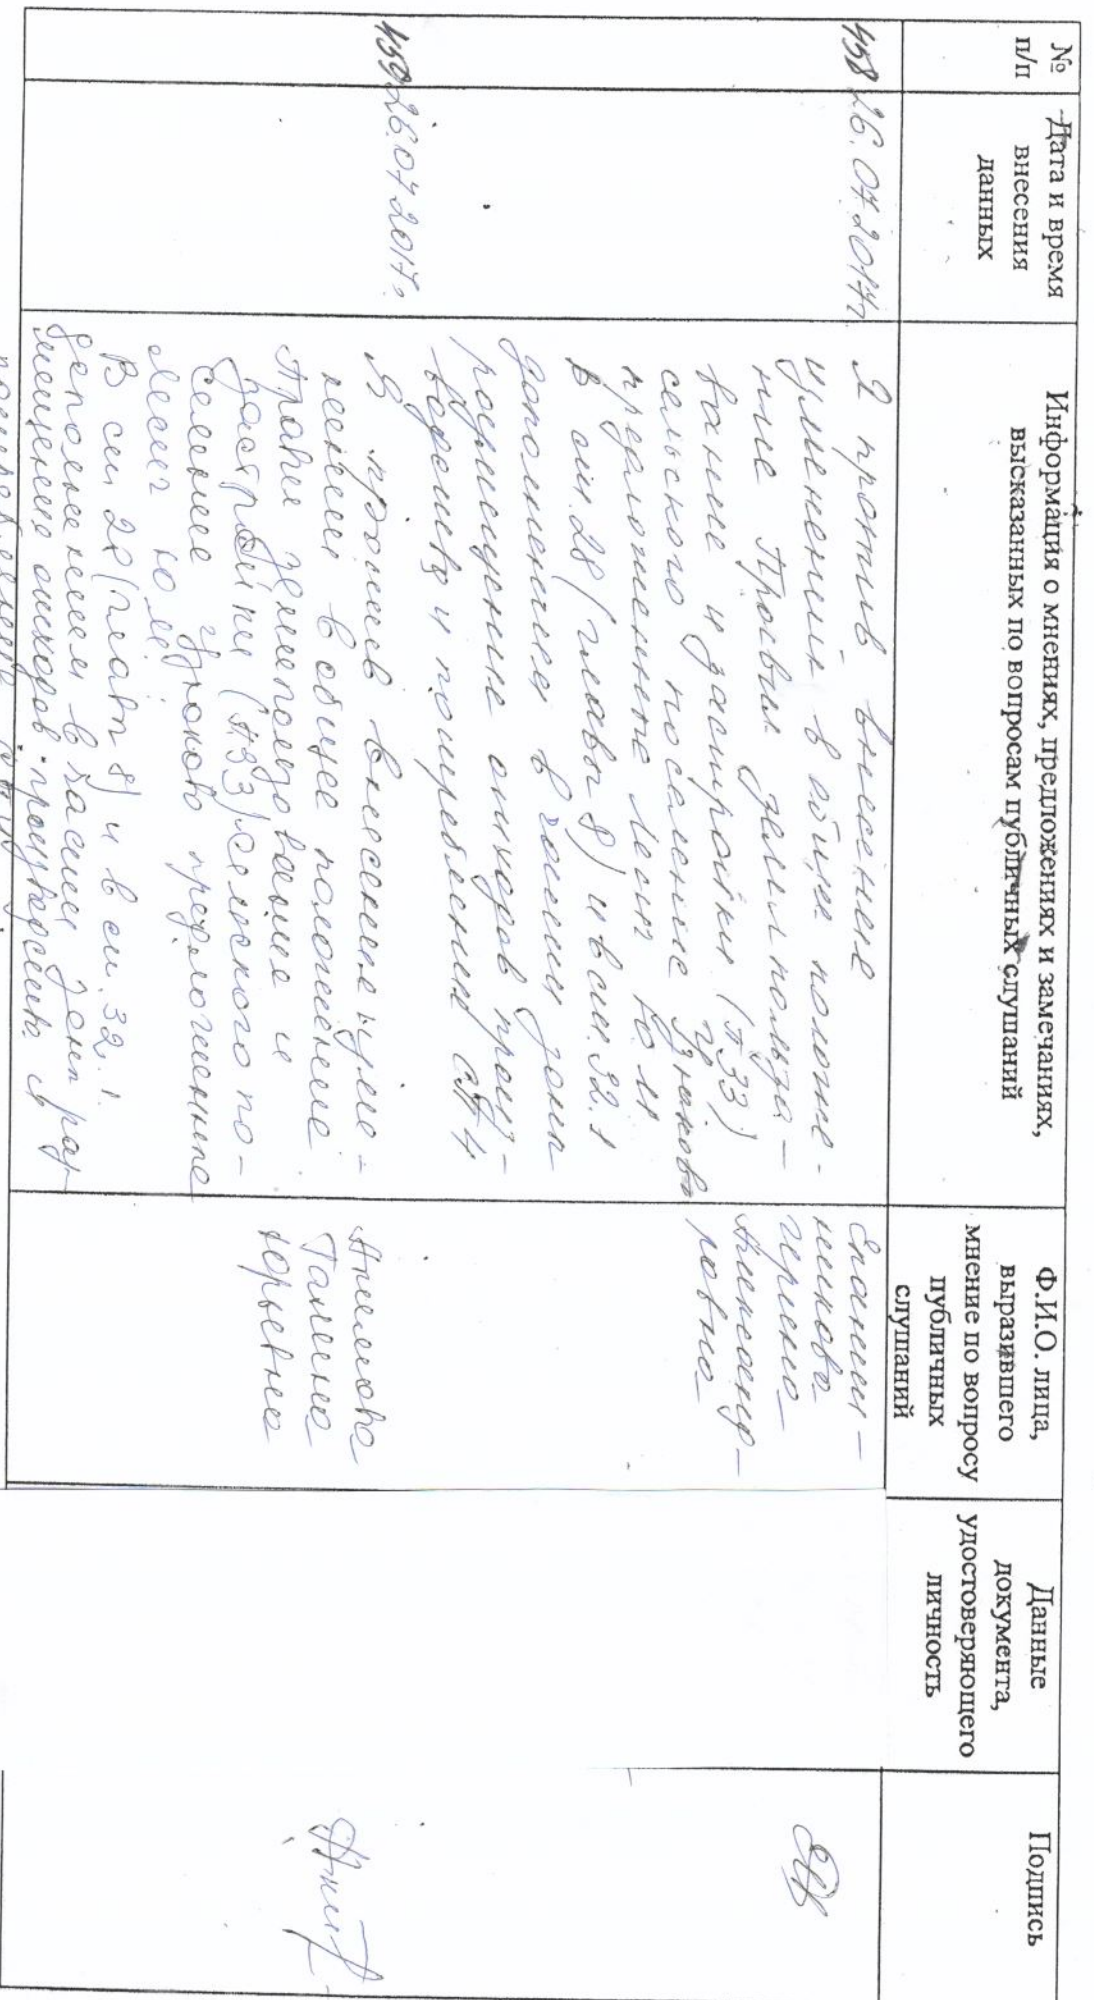 № п/п
Дата и время внесения данных
Информация о мнениях, предложениях и замечаниях, высказанных по вопросам публичных слушаний
Ф.И.О. лица, выразившего мнение по вопросу публичных слушаний
Данные документа, удостоверяющего личность
Подпись
458
26.07.2017г.
Я против внесение
изменений в общие положе-
ние Правил землепользо-
вание и застройки (ПЗЗ)
сельского поселение
предложенные
в ст. 28 (главы 8) и в ст. 32.1
дополнения в части зоны
размещение отходов произ-
водства и потребления СП4
459
26.07.2017г.
Я против внесение изме-
нений в общее положение
Правил землепользование и
застройки (ПЗЗ) сельского по-
селение предложенные
В ст 28 (глава 8) и в ст. 32.1.
дополнением в части зоны раз-
мещение отходов производство и
Александ-
ровна
Галина
Юрьевна